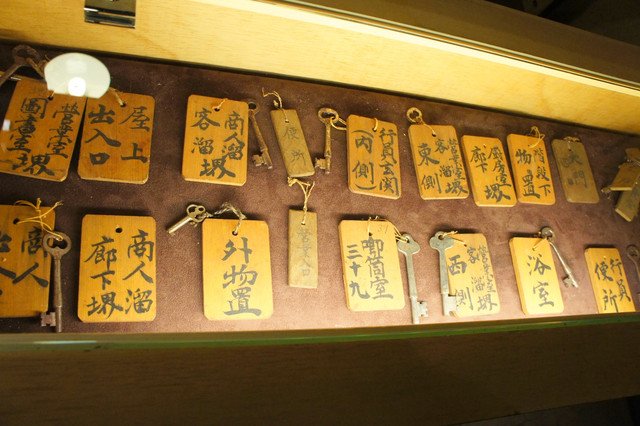 營業室
圖書室堺
屋上
出入口
商溜
客溜堺
便所
行員玄関
(内側)
營業室
客溜堺
東側
廊下堺
階段下
物置
商人
商人溜
廊下堺
外物置
三十九
營業室
客溜堺
西側
浴室
行員
便所